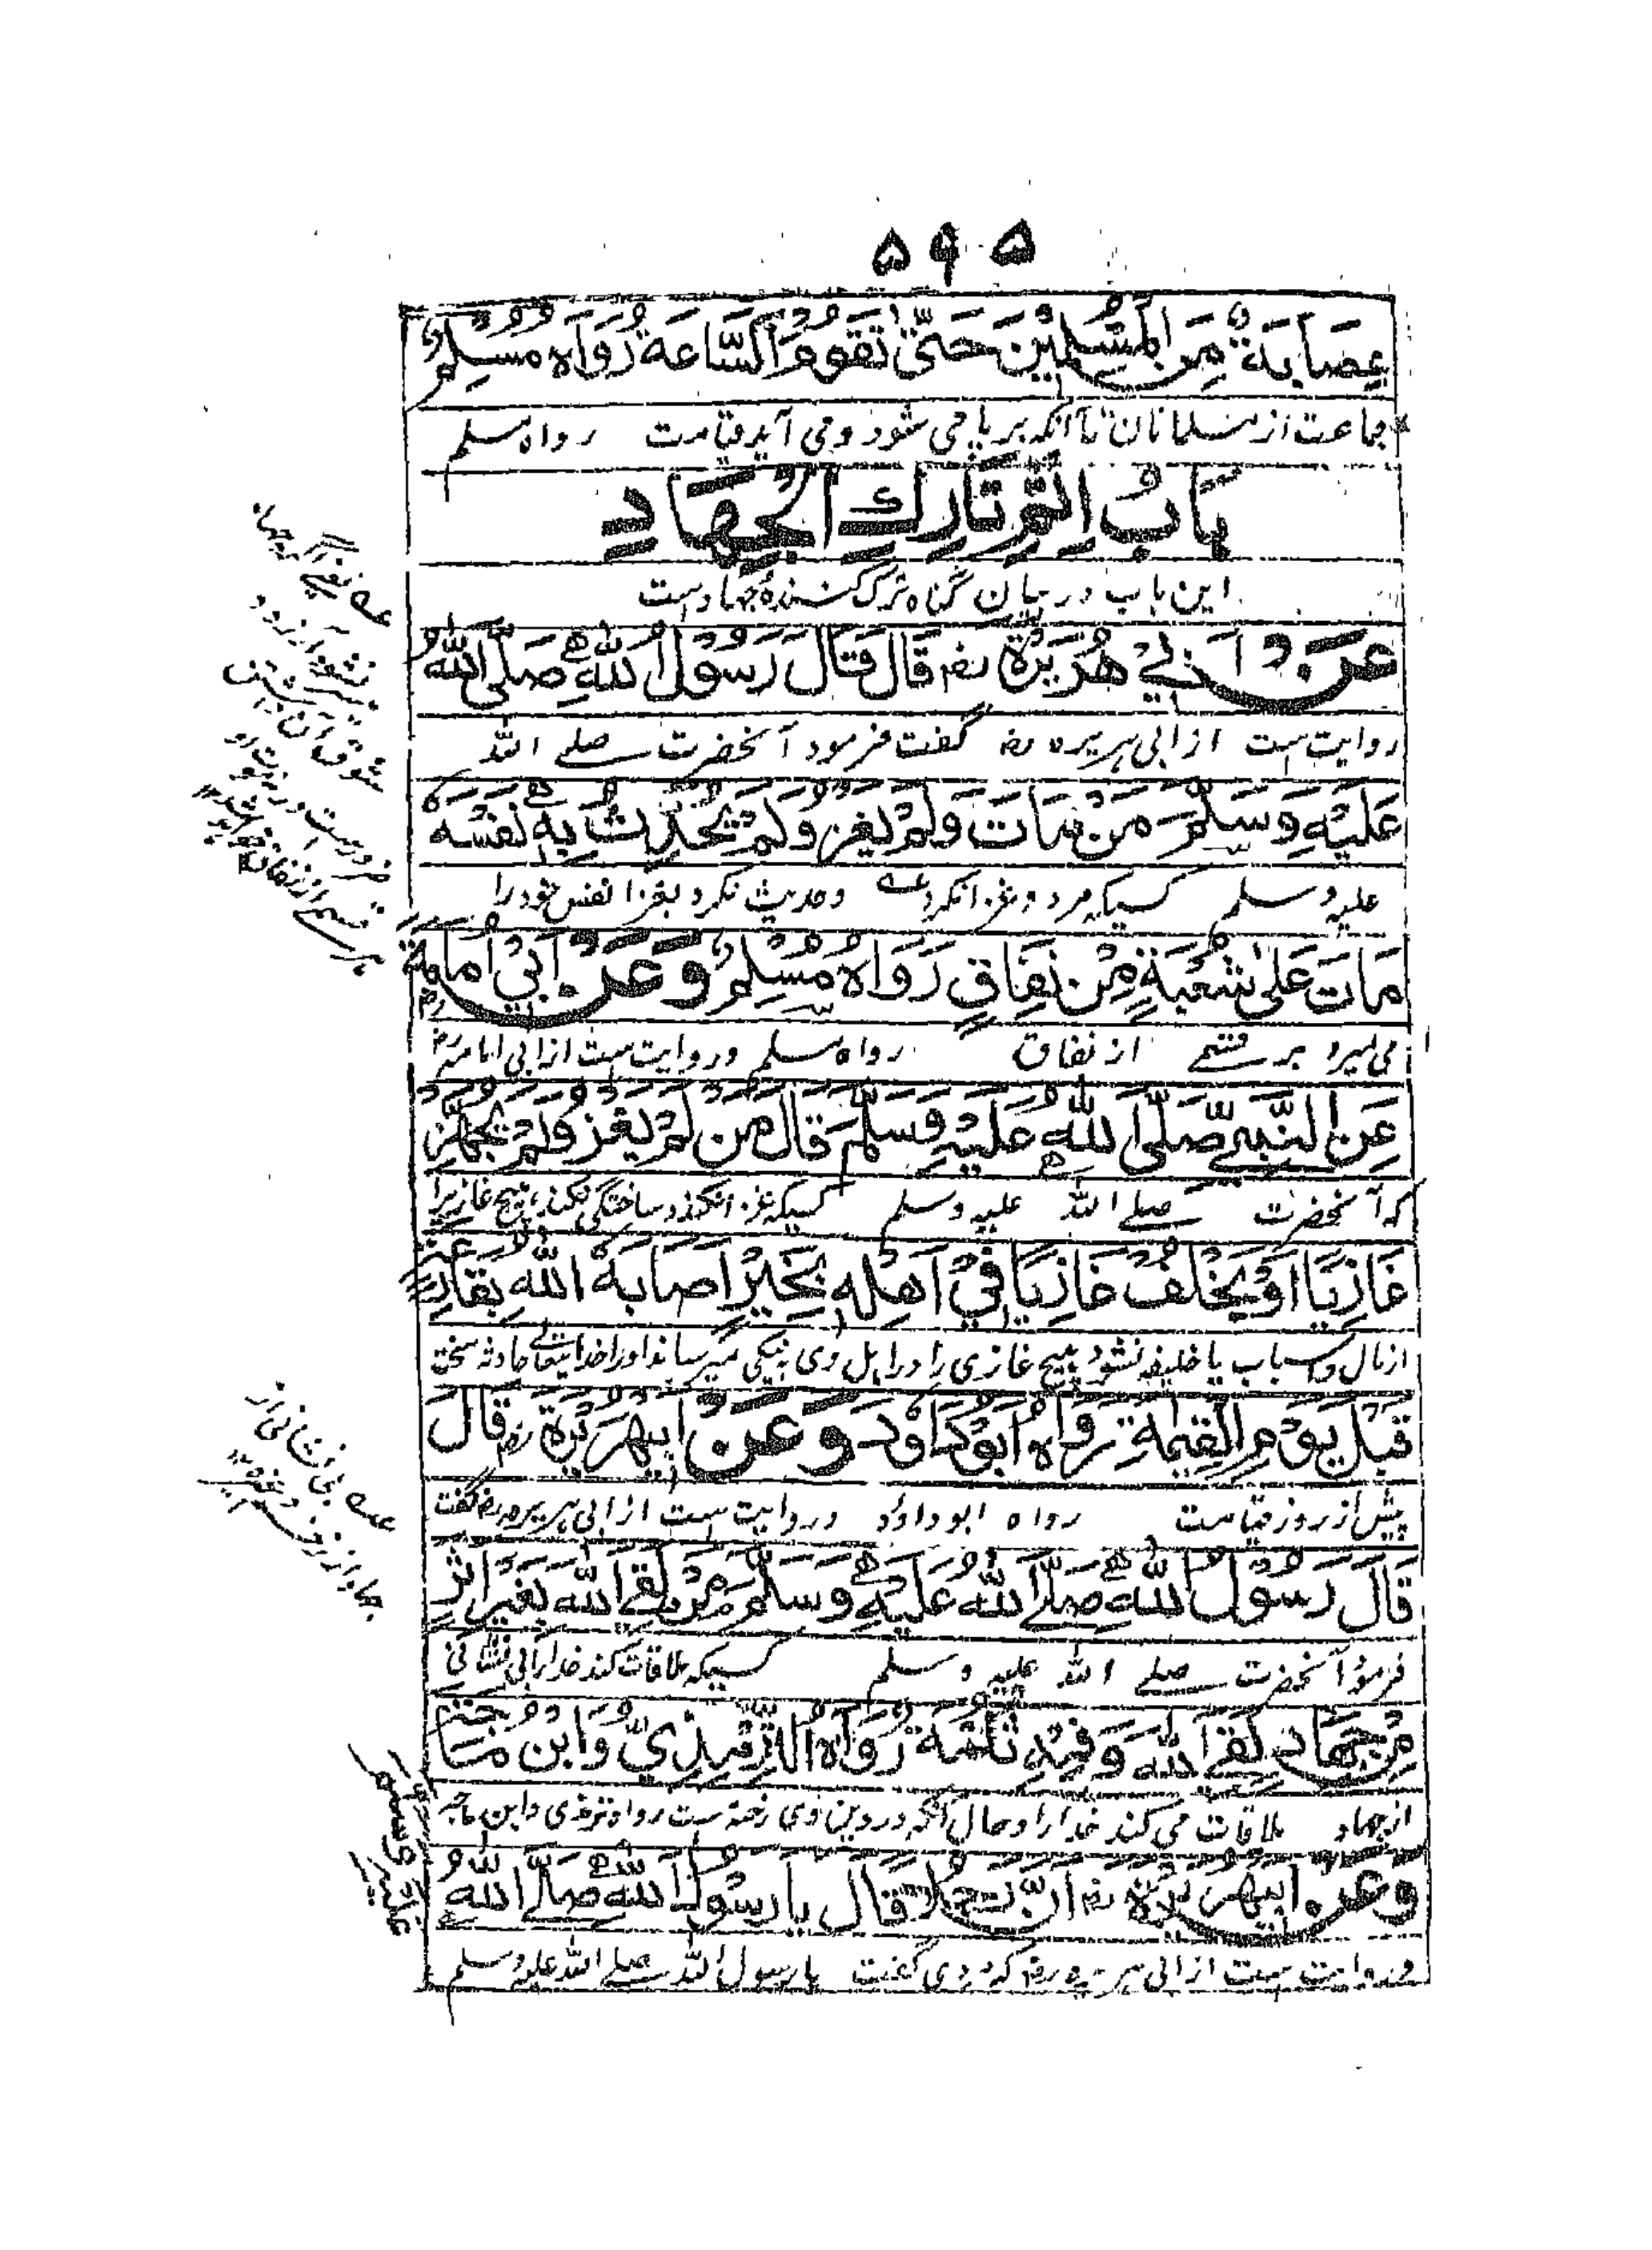 ۵۶۵
عِصَابَةٌ مِنَ الْمُسْلِمِيْنَ حَتّٰى تَقُوْمَ السَّاعَةُ رَوَاهُ مُسْلِمٌ
جماعت از مسلمانان تا آنکه برپا می شود و می آید قیامت رواه مسلم
بَابُ اِثْمِ تَارِكِ الْجِهَادِ
این باب در بیان گناه ترک کنندهٔ جهاد است
عَنْ اَبِيْ هُرَيْرَةَ رضہ قَالَ قَالَ رَسُوْلُ اللهِ صَلَّى اللهُ
روایت ست از ابی هریره رضہ گفت فرمود آنحضرت صلے الله
عَلَيْهِ وَسَلَّمَ مَنْ مَاتَ وَلَمْ يَغْزُ وَلَمْ يُحَدِّثْ بِهِ نَفْسَهُ
علیه وسلم کسیکه مرد و غزا نکرد و حدیث نکرد بغزا نفس خود را
مَاتَ عَلٰى شُعْبَةٍ مِنْ نِفَاقٍ رَوَاهُ مُسْلِمٌ وَعَنْ اَبِيْ اُمَامَةَ رض
می میرد بر قسمے از نفاق رواه مسلم و روایت ست از ابی امامه رض
عَنِ النَّبِيِّ صَلَّى اللهُ عَلَيْهِ وَسَلَّمَ قَالَ مَنْ لَمْ يَغْزُ وَلَمْ يُجَهِّزْ
که آنحضرت صلے الله علیه وسلم کسیکه غزا نکند و ساختگی نکند هیچ غازیرا
غَازِيًا اَوْ يَخْلُفْ غَازِيًا فِيْ اَهْلِهِ بِخَيْرٍ اَصَابَهُ اللهُ بِقَارِعَةٍ
از مال و اسباب یا خلیفه نشود هیچ غازی را در اهل وی به نیکی میرساند او را خدایتعالے حادثهٔ سخت
قَبْلَ يَوْمِ الْقِيٰمَةِ رَوَاهُ اَبُوْ دَاوُدَ وَعَنْ اَبِيْهُرَيْرَةَ رضہ قَالَ
پیش از روز قیامت رواه ابوداؤد و روایت ست از ابی هریره رضہ گفت
قَالَ رَسُوْلُ اللهِ صَلَّى اللهُ عَلَيْهِ وَسَلَّمَ مَنْ لَقِيَ اللهَ بِغَيْرِ اَثَرٍ
فرمود آنحضرت صلے الله علیه وسلم کسیکه ملاقات کند خدا را بی نشانی
مِنْ جِهَادٍ لَقِيَ اللهَ وَفِيْهِ ثُلْمَةٌ رَوَاهُ التِّرْمِذِيُّ وَابْنُ مَاجَةَ
از جهاد ملاقات می کند خدا را و حال آنکه در دین وی رخنه ست رواه ترمذی و ابن ماجه
وَعَنْ اَبِيْهُرَيْرَةَ رضہ اَنَّ رَجُلًا قَالَ يَا رَسُوْلَ اللهِ صَلَّى اللهُ
و روایت ست از ابی هریره رضہ که مردی گفت یا رسول الله صلے الله علیه وسلم